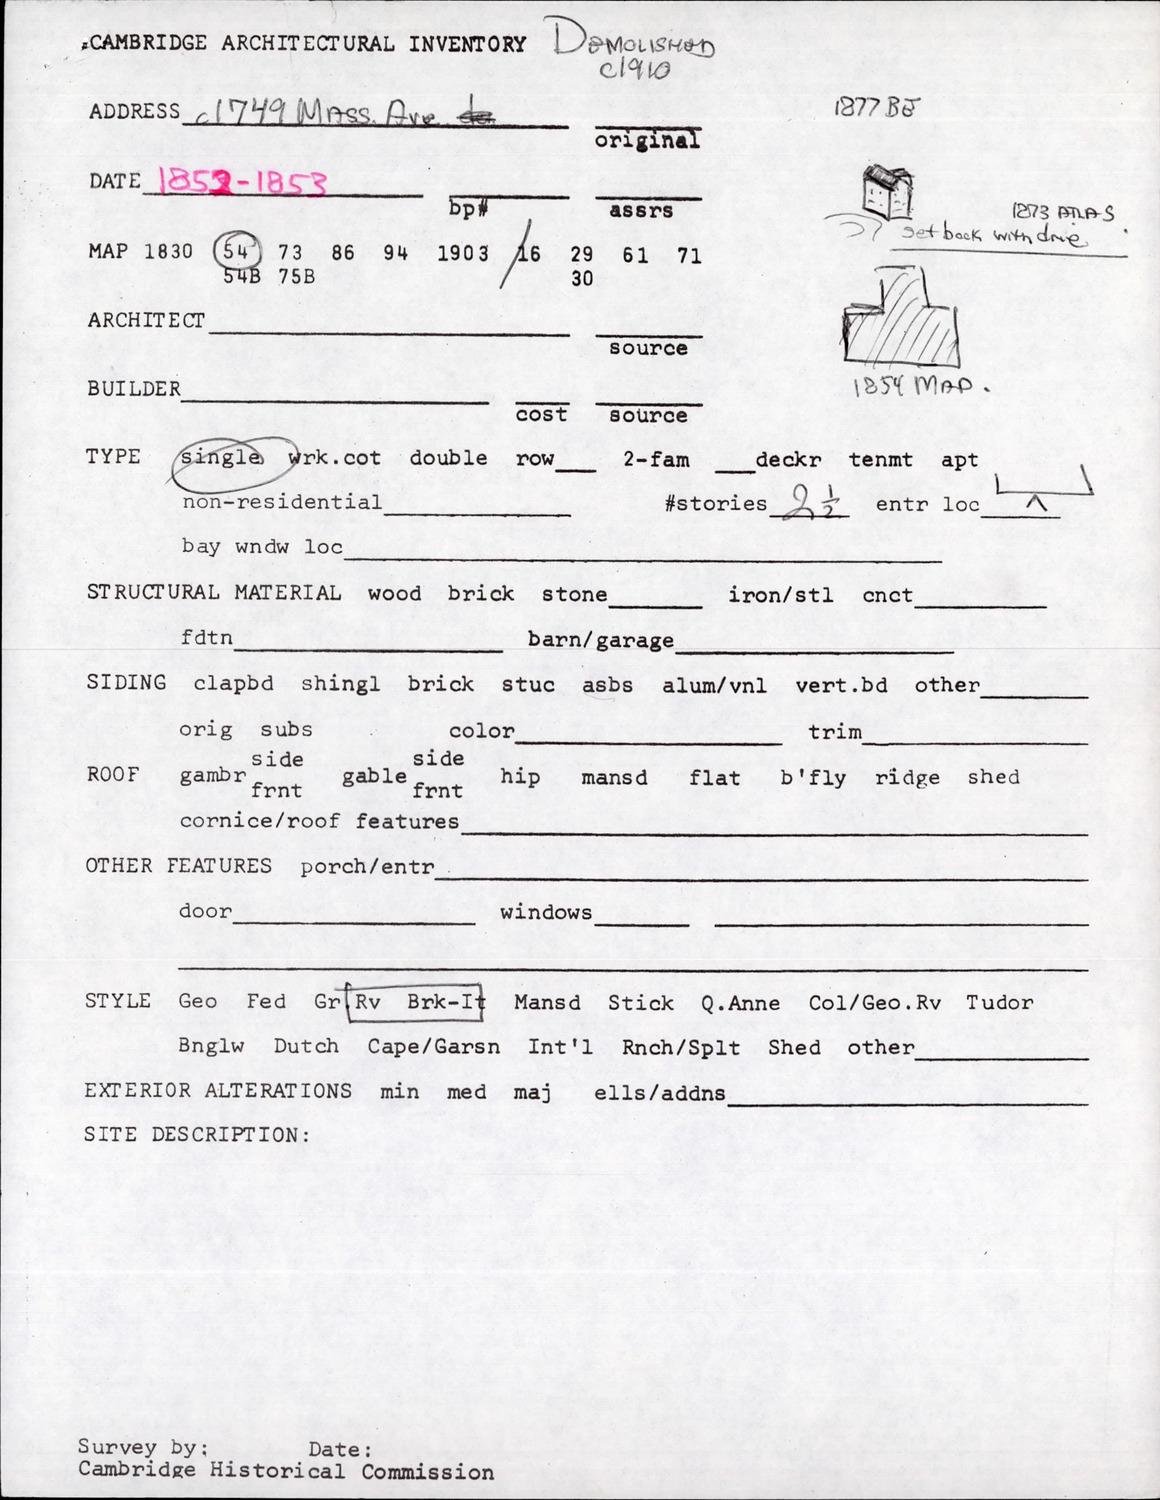 CAMBRIDGE ARCHITECTURAL INVENTORY DEMOLISHED
c1910
ADDRESS c1749 Mass. Ave
original
1877 BE
DATE 1852-1853
bp# assrs
1873 ATLAS
set back with drive
MAP 1830 54 73 86 94 1903 16 29 61 71
54B 75B 30
ARCHITECT
source
1854 MAP.
BUILDER
cost source
TYPE single wrk.cot double row___ 2-fam ___deckr tenmt apt
non-residential #stories 2 1/2 entr loc ^
bay wndw loc
STRUCTURAL MATERIAL wood brick stone iron/stl cnct
fdtn barn/garage
SIDING clapbd shingl brick stuc asbs alum/vnl vert.bd other
orig subs color trim
side side
ROOF gambr gable hip mansd flat b'fly ridge shed
frnt frnt
cornice/roof features
OTHER FEATURES porch/entr
door windows
STYLE Geo Fed Gr Rv Brk-It Mansd Stick Q.Anne Col/Geo.Rv Tudor
Bnglw Dutch Cape/Garsn Int'l Rnch/Splt Shed other
EXTERIOR ALTERATIONS min med maj ells/addns
SITE DESCRIPTION:
Survey by: Date:
Cambridge Historical Commission